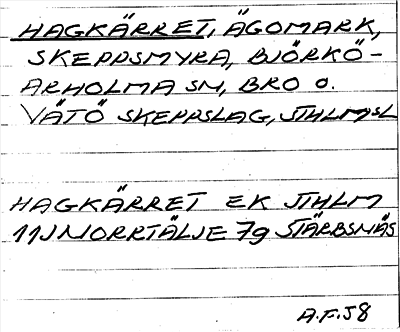 HAGKÄRRET, ÄGOMARK,
SKEPPSMYRA, BJÖRKÖ-
ARHOLMA SN, BRO O.
VÄTÖ SKEPPSLAG, STHLMSL
HAGKÄRRET EK STHLM
11J NORRTÄLJE 7g STÄRBSNÄS
A.F. 58